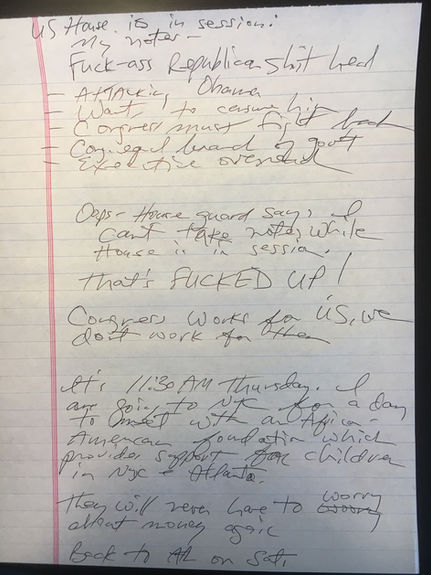 US House is in session:
My notes -
Fuck-ass Republican shit head
- Attacking Obama
- Want to censure him
- Congress must fight back
- Coequal branch of gov't
- Executive overreach
Oops - House guard says I
can't take notes while
House is in session.
That's FUCKED UP!
Congress works for US, we
don't work for them
It's 11:30 AM Thursday. I
am going to NYC for a day
to meet with an African-
American foundation which
provides support for children
in NYC & Atlanta.
They will never have to worry
about money again
Back to AL on Sat.